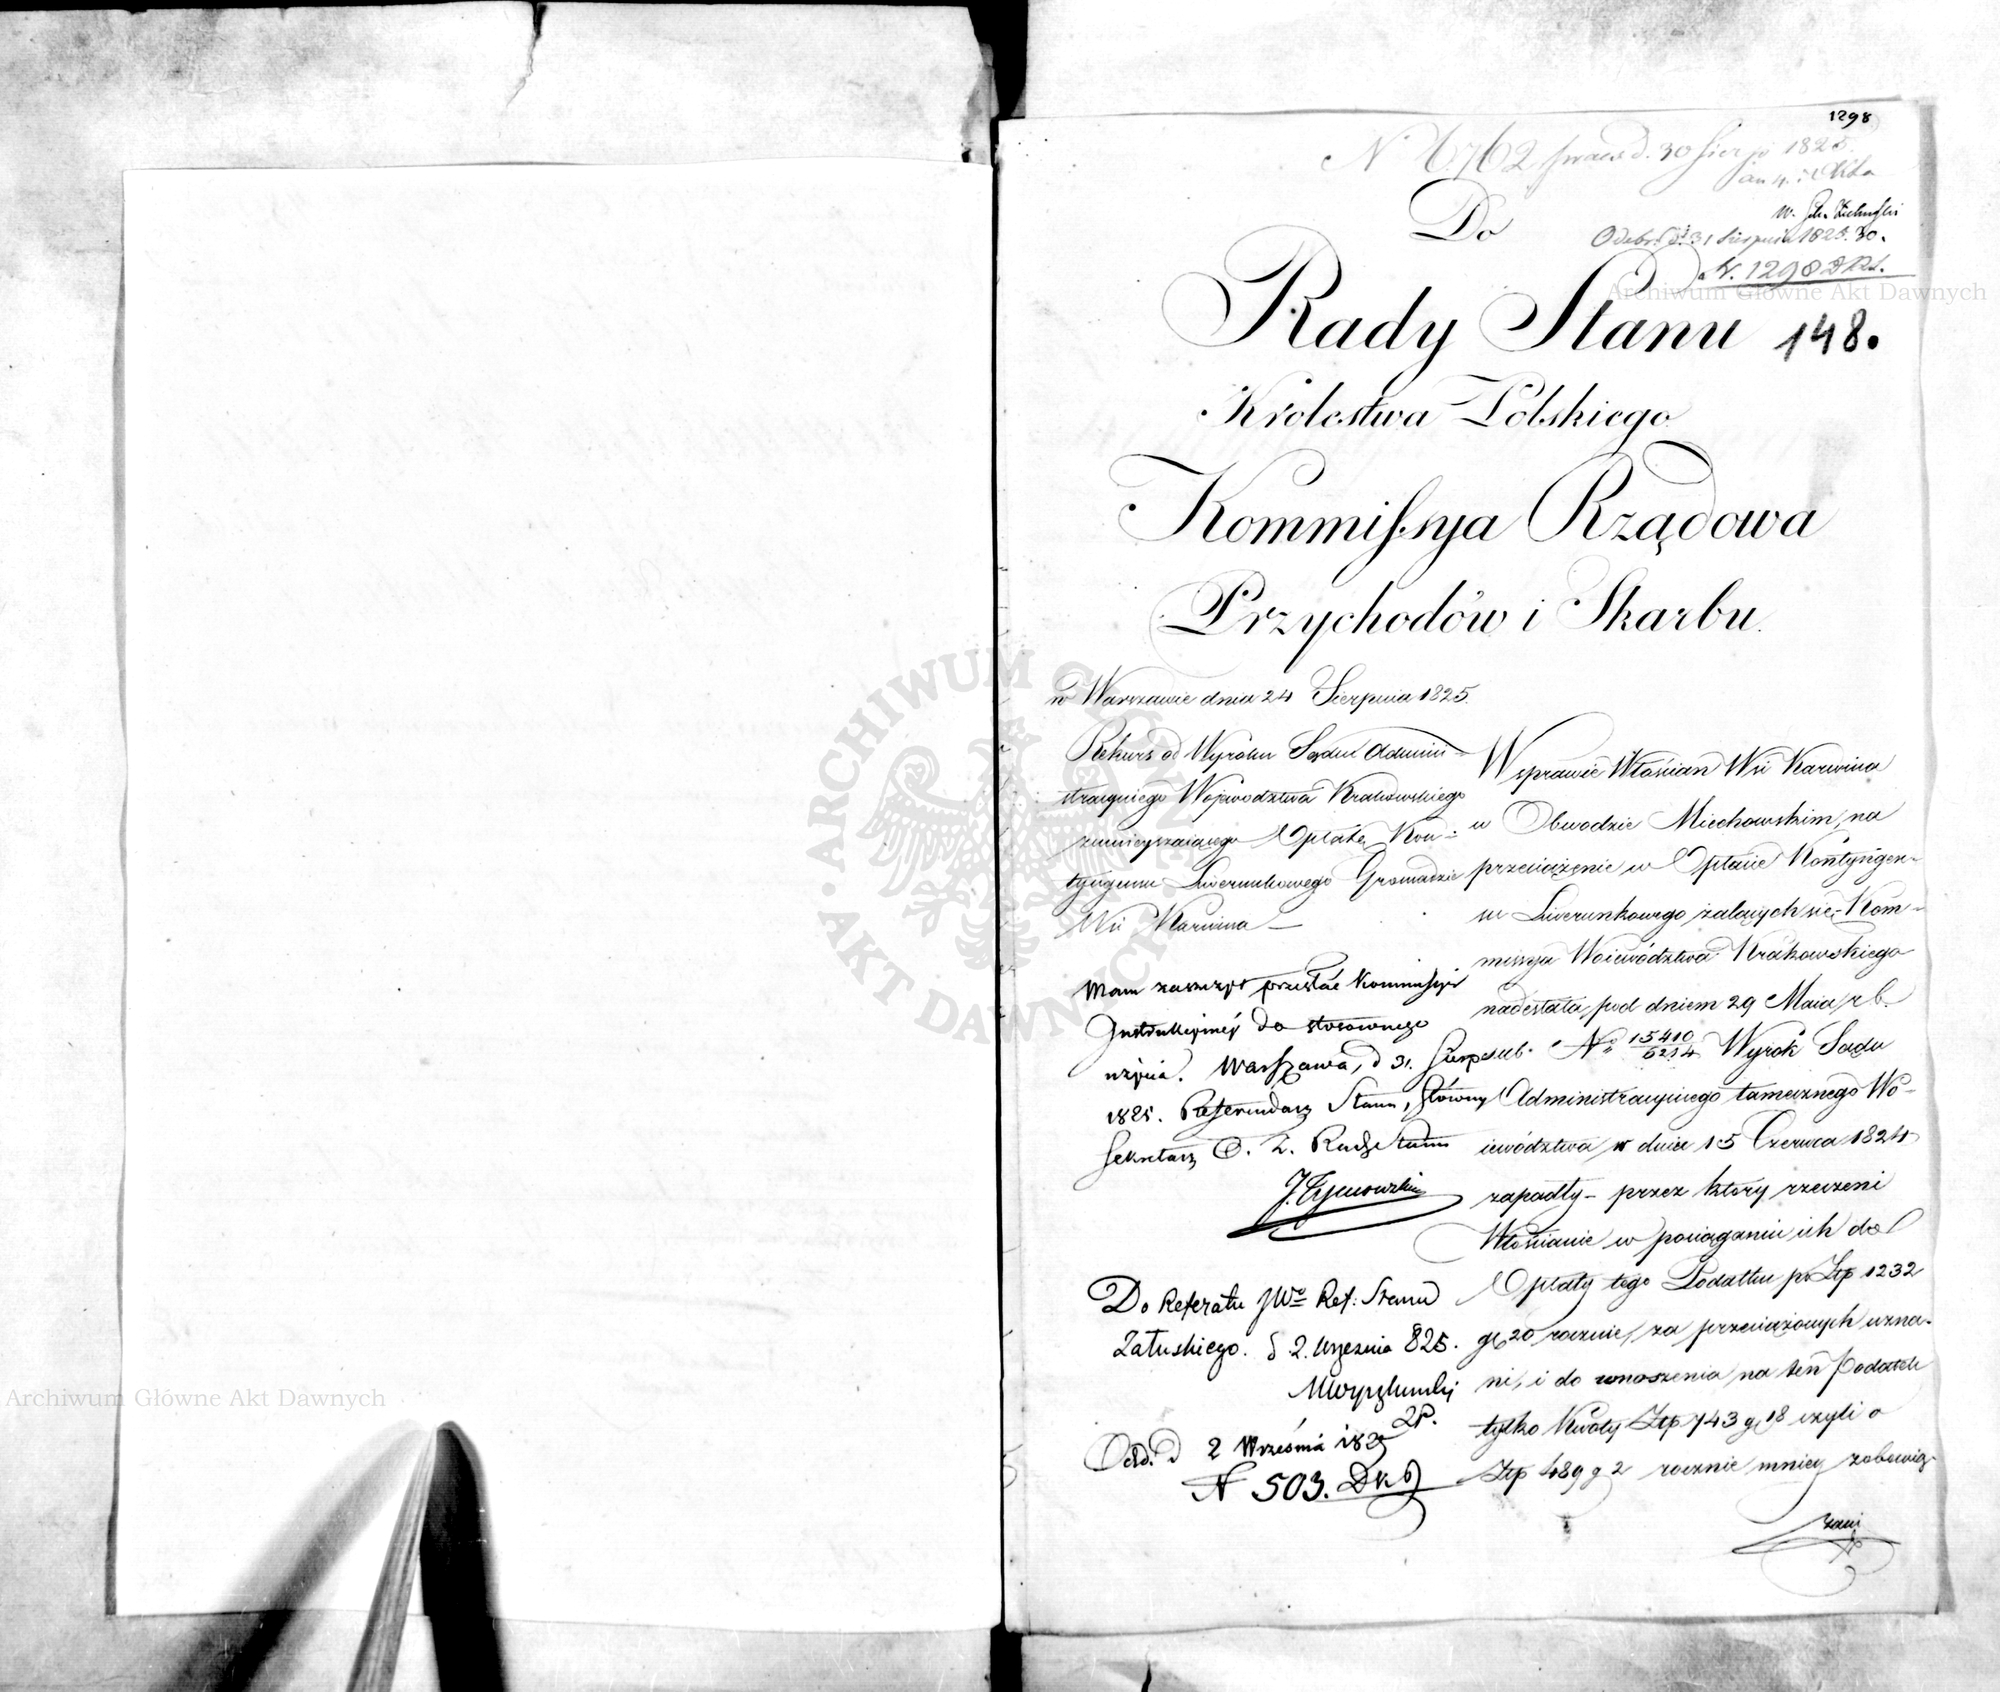 1298
N 6762 d. 30 Sierp 1825.
Odebr. d. 31 Sierpnia 1825. 30.
N. 1298
Do
Rady Stanu 148.
Królestwa Polskiego
Kommissya Rządowa
Przychodów i Skarbu.
w Warszawie dnia 24 Sierpnia 1825.
Rekurs od Wyroku Sądu Admini-
stracyinego Województwa Krakowskiego
zmnieyszaiącego Opłatę Kon-
tyngensu Liwerunkowego Gromadzie
Wsi Karwina
Mam zaszczyt przesłać Kommissyi
Instrukcyinéy do stosownego
użycia. Warszawa, d 31. Sierpnia
1825. Referendarz Stanu, Główny
Sekretarz O. Z. Rady Stanu
Do Referatu JWo Ref: Stanu
Załuskiego. d. 2. Września 825.
Odd. d 2 Września 1825
N 503.
W sprawie Włościan Wsi Karwina
w Obwodzie Miechowskim, na
przeciążenie w Opłacie Kontyngen-
su Liwerunkowego żalących się, Kom-
missya Woiewództwa Krakowskiego
nadesłała, pod dniem 29 Maia r b.
N 15410/6214 Wyrok Sądu
Administracyinego tamecznego Wo-
iewództwa w dniu 15 Czerwca 1824
zapadły – przez który rzeczeni
Włościanie w pociąganiu ich do
Opłaty tego Podatku po Złp 1232
gr 20 rocznie, za przeciążonych uzna-
ni, i do wnoszenia na ten Podatek
tylko Kwoty Złp 743 g 18 czyli o
Złp 489 g 2 rocznie mniey zobowią-
zani
Archiwum Główne Akt Dawnych
Archiwum Główne Akt Dawnych
ARCHIWUM GŁÓWNE AKT DAWNYCH